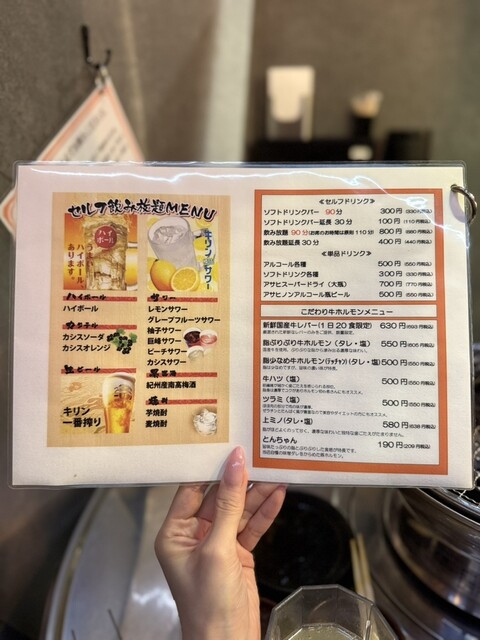 セルフ飲み放題MENU
ハイボール
うまい
ハイボール
あります。
キリンサワー
ハイボール
ハイボール
カクテル
カシスソーダ
カシスオレンジ
生ビール
キリン
一番搾り
サワー
レモンサワー
グレープフルーツサワー
柚子サワー
巨峰サワー
ピーチサワー
カシスサワー
果実酒
紀州産南高梅酒
焼酎
芋焼酎
麦焼酎
≪セルフドリンク≫
ソフトドリンクバー 90分 300円(330円税込)
ソフトドリンクバー延長 30分 100円(110円税込)
飲み放題 90分 800円(880円税込)
飲み放題延長 30分 400円(440円税込)
≪単品ドリンク≫
アルコール各種 500円(550円税込)
ソフトドリンク各種 300円(330円税込)
アサヒスーパードライ(大瓶) 700円(770円税込)
アサヒノンアルコール瓶ビール 500円(550円税込)
こだわり牛ホルモンメニュー
新鮮国産牛レバー(1日20食限定) 630円(693円税込)
脂ぷりぷり牛ホルモン(タレ・塩) 550円(605円税込)
脂少なめ牛ホルモン(テッチャン)(タレ・塩) 500円(550円税込)
牛ハツ(塩) 500円(550円税込)
ツラミ(塩) 500円(550円税込)
上ミノ(タレ・塩) 580円(638円税込)
とんちゃん 190円(209円税込)